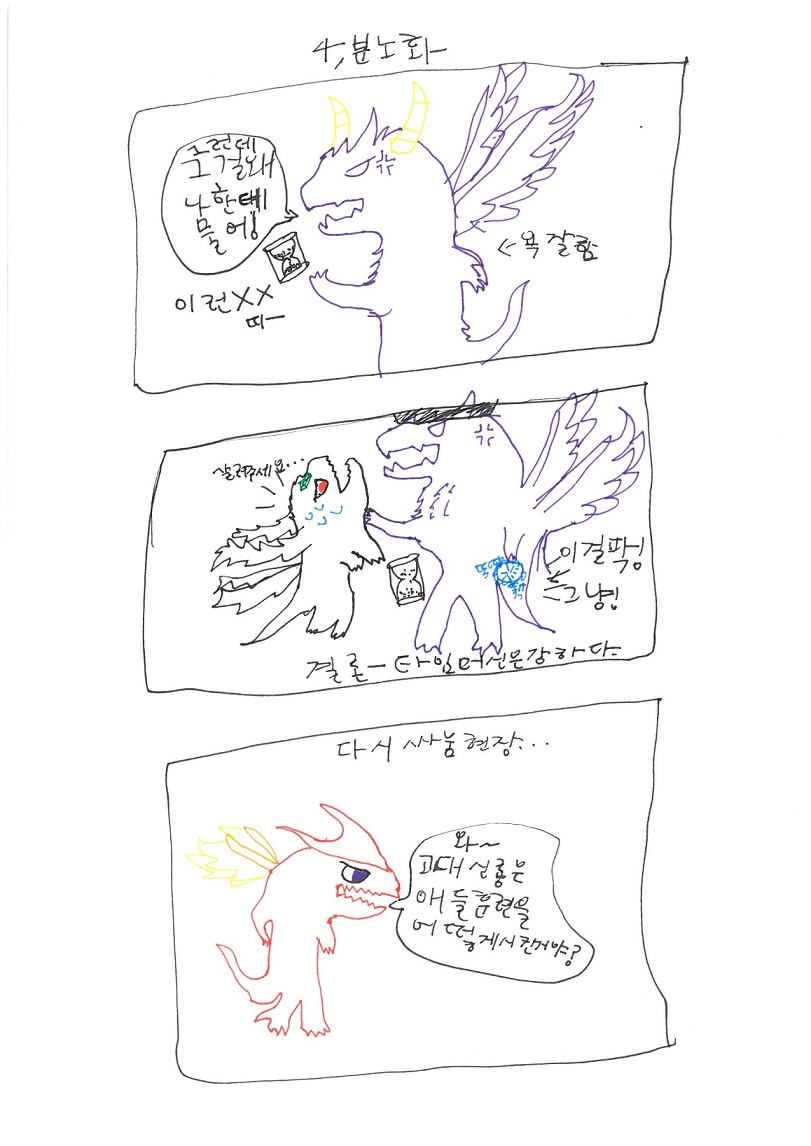 4, 분노화
그런데
그걸왜
나한테
물어!
이런XX
띠—
←욕잘함
살려주세요...
이걸팍!
그냥!
결론—타임머신은강하다
다시 싸움현장...
와~
고대신룡은
애들훈련을
어떻게시킨거야?